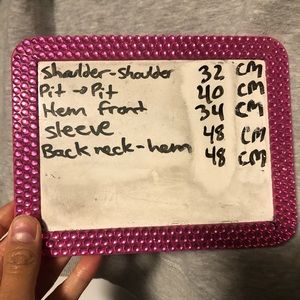 Shoulder-shoulder 32 cm
Pit → Pit 40 cm
Hem front 34 cm
sleeve 48 cm
Back neck-hem 48 cm